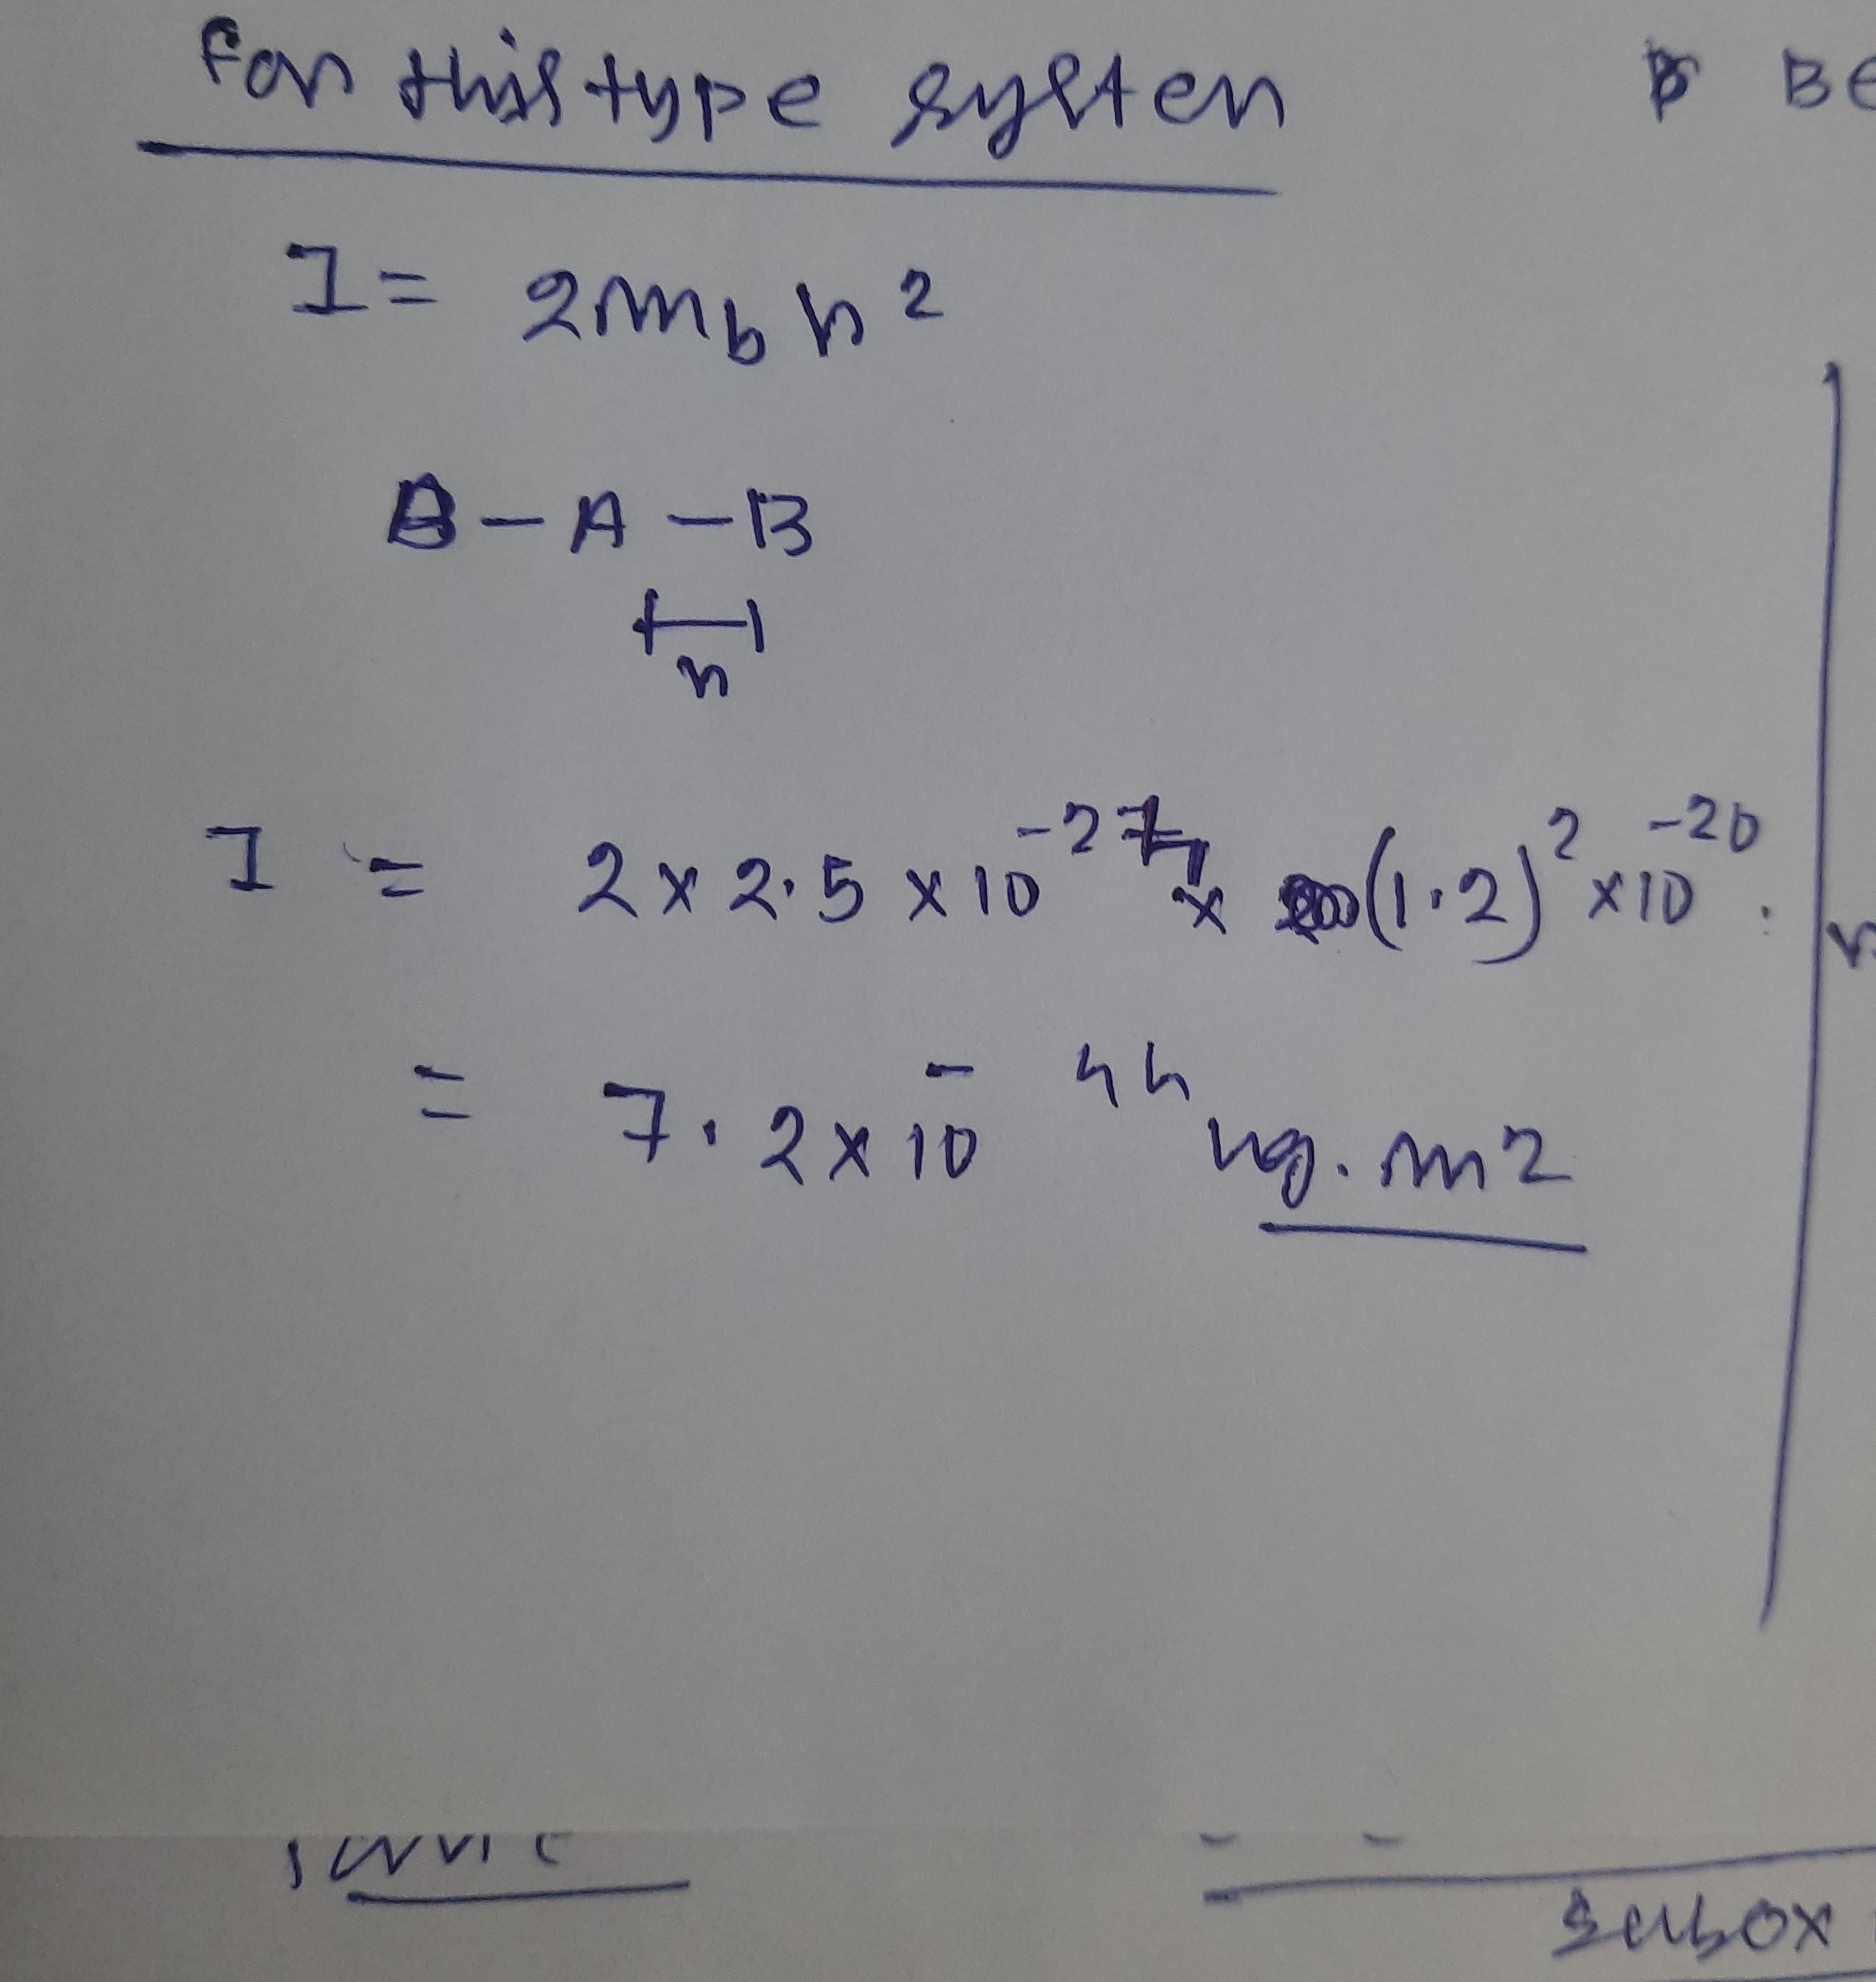 For this type system
B Be
I = 2 m_b r²
B – A – B
r
I = 2 × 2.5 × 10⁻²⁷ × (1.2)² × 10⁻²⁰
= 7.2 × 10⁻⁴⁴ kg. m2